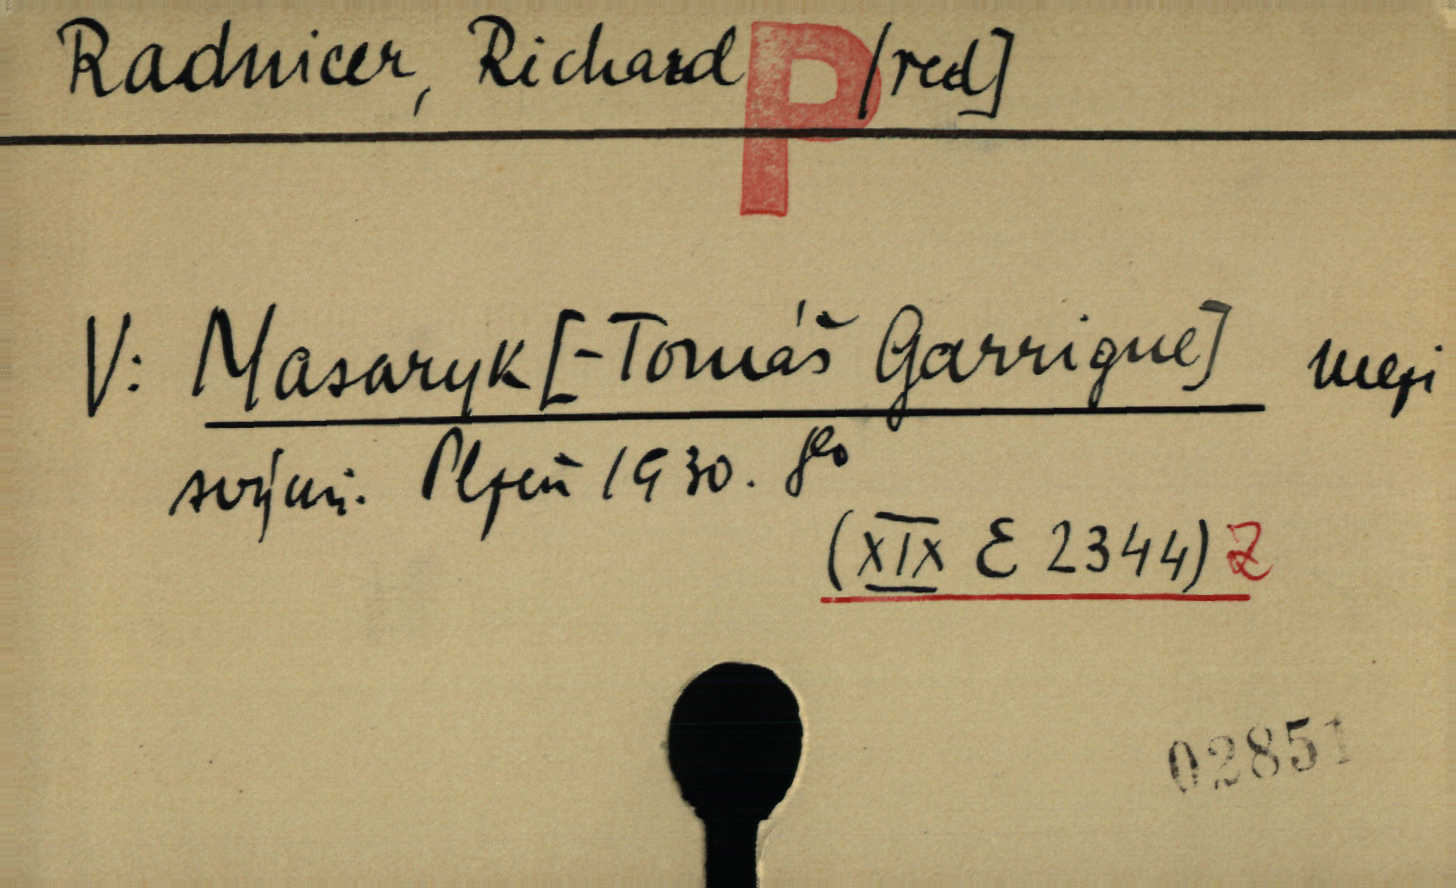 Radnicer, Richard P /red]
V: Masaryk [-Tomáš Garrigue] mezi
svými. Plzeň 1930. 8º
(XIX E 2344) Z
02851